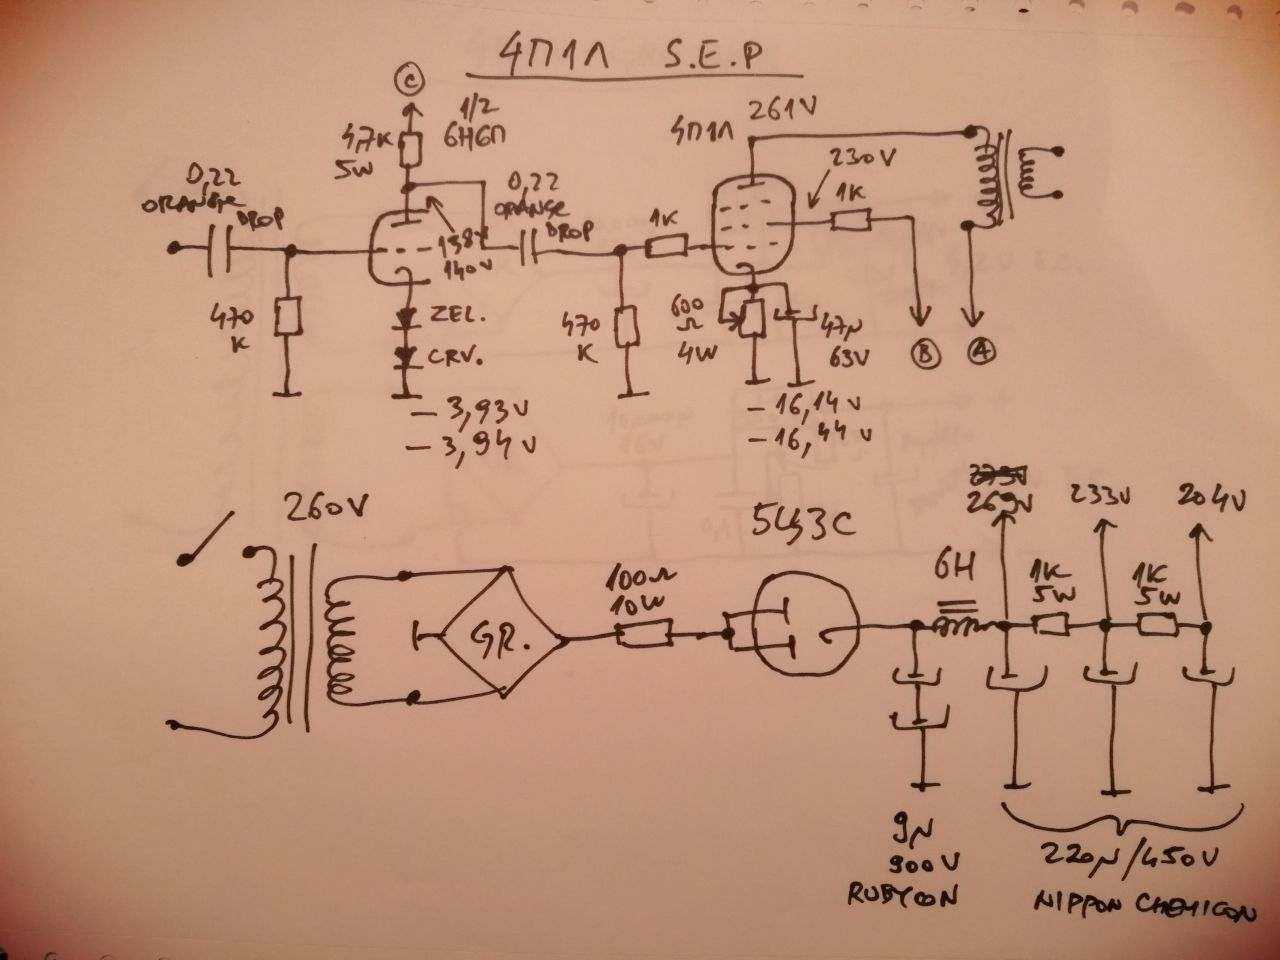 4П1Л S.E.P
C
4,7K
5W
1/2
6Н6П
0,22
ORANGE
DROP
470
K
138V
140V
ZEL.
CRV.
- 3,93V
- 3,94V
0,22
ORANGE
DROP
470
K
1K
4П1Л
261V
230V
1K
600
Ω
4W
47μ
63V
- 16,14V
- 16,44V
B
A
260V
GR.
100Ω
10W
5Ц3С
6H
269V
1K
5W
233V
1K
5W
204V
9μ
900V
RUBYCON
220μ/450V
NIPPON CHEMICON